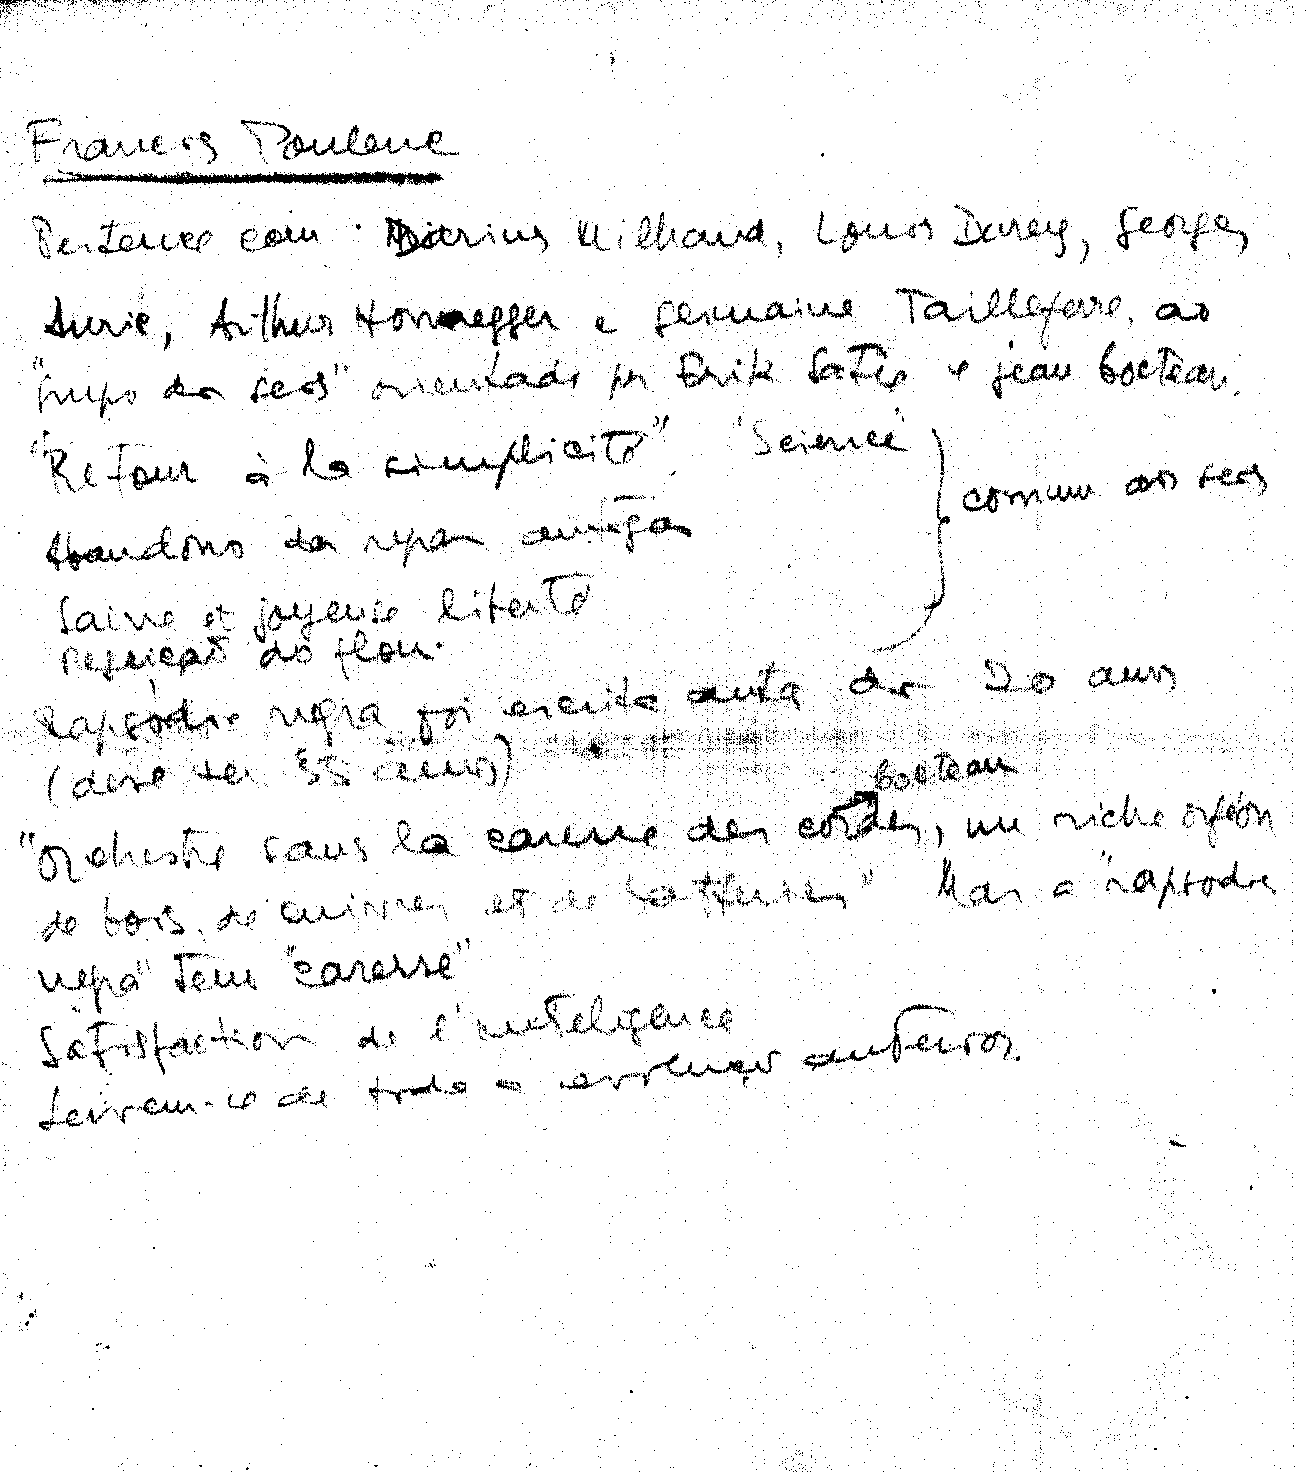 Francis Poulenc
Pertence com Darius Milhaud, Louis Durey, Georges
Auric, Arthur Honnegger e Germaine Tailleferre, ao
"grupo dos seis" orientado por Erik Satie e Jean Cocteau.
"Retour à la simplicité". "Science"
comum aos seis
Abandono das regras antigas
Saine et joyeuse liberté
Rejeição do flou.
Rapsódia negra foi escrita antes dos 20 anos
(deve ter 35 anos)
Cocteau
"Orchestre sans la caresse des cordes, un riche orféon
de bois, de cuivres et de batteries" Mas a "rapsodia
negra" tem "caresse"
Satisfaction de l'inteligence
Servem-se de toda a evolução anterior.